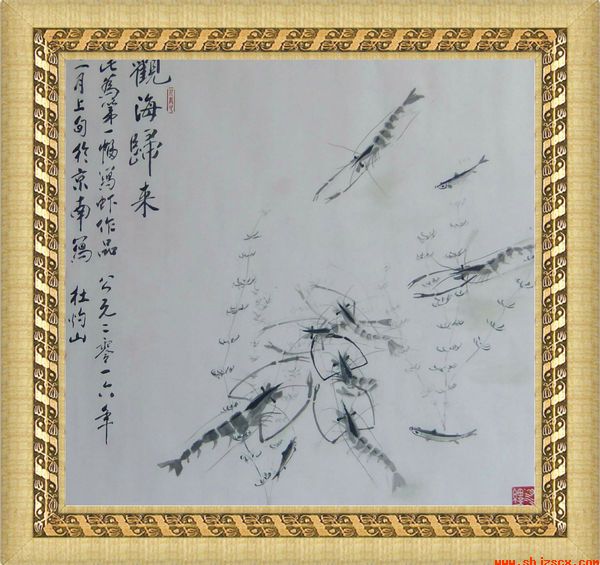 觀海歸来
此為第一幅寫虾作品 公元二零一六年
一月上旬於京南寫 杜灼山
www.shizscx.com